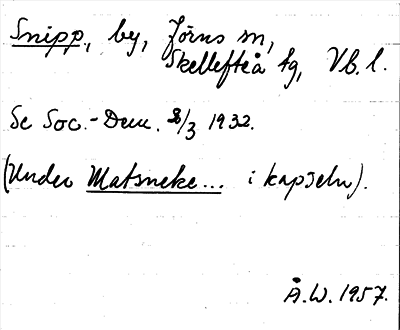 Snipp., by, Jörns sn,
Skellefteå tg, Vb. l.
Se Soc.-Dem. 8/3 1932.
(Under Matsneke... i kapseln).
Å.W. 1957.